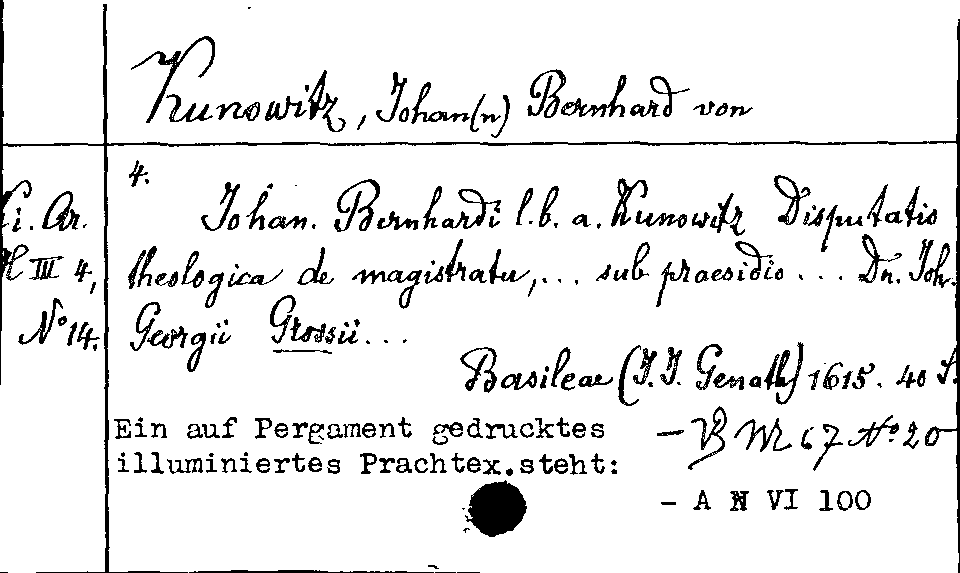 Kunowitz, Johan(n) Bernhard von
4.
Ki. Ar.
H III 4,
No 14.
Johan. Bernhardi l. b. a. Kunowitz Disputatio
theologica de magistratu, ... sub praesidio ... Dn. Joh.
Georgii Grossii ...
Basileae (J. J. Genath) 1615. 40 S.
Ein auf Pergament gedrucktes
illuminiertes Prachtex. steht:
— VB M 67 No 20
- A N VI 100